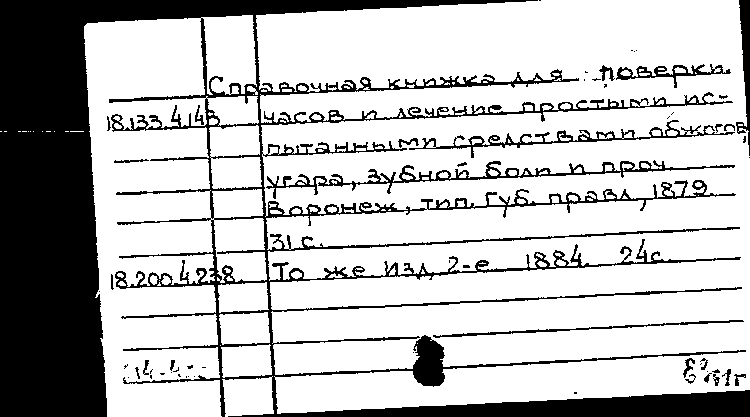 Справочная книжка для поверки
18.133.4.143. часов и лечение простыми ис-
пытанными средствами обжогов,
угара, зубной боли и проч.
Воронеж, тип. Губ. правл, 1879.
31 с.
18.200.4.238. То же Изд. 2-е 1884. 24с.